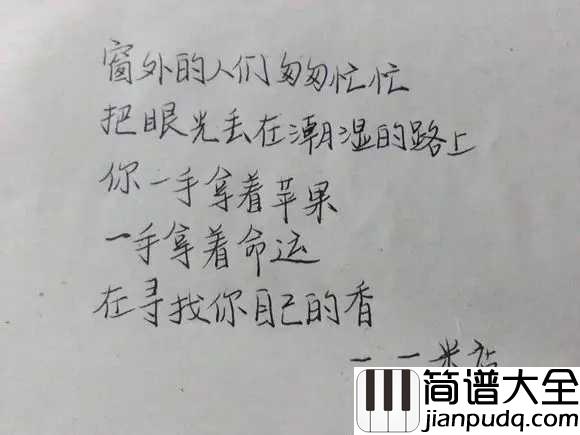 窗外的人们匆匆忙忙
把眼光丢在潮湿的路上
你一手拿着苹果
一手拿着命运
在寻找你自己的香
——米店
简谱大全
www.jianpudq.com